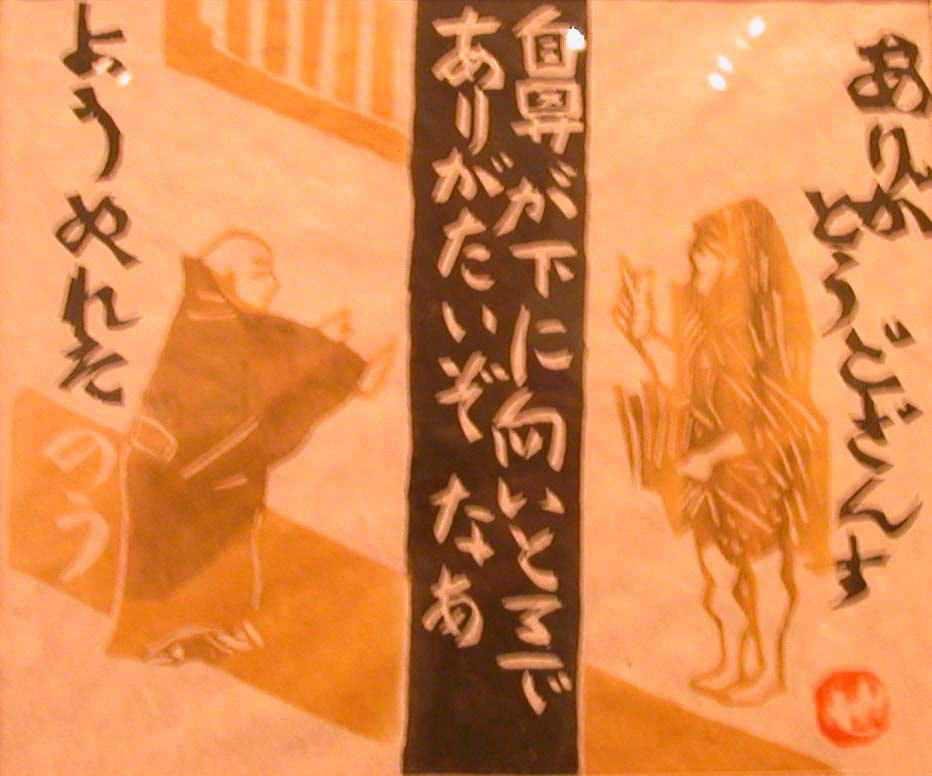 ありが
とうござんす
鼻が下に向いとるで
ありがたいぞ なあ
ようぬれた
のう